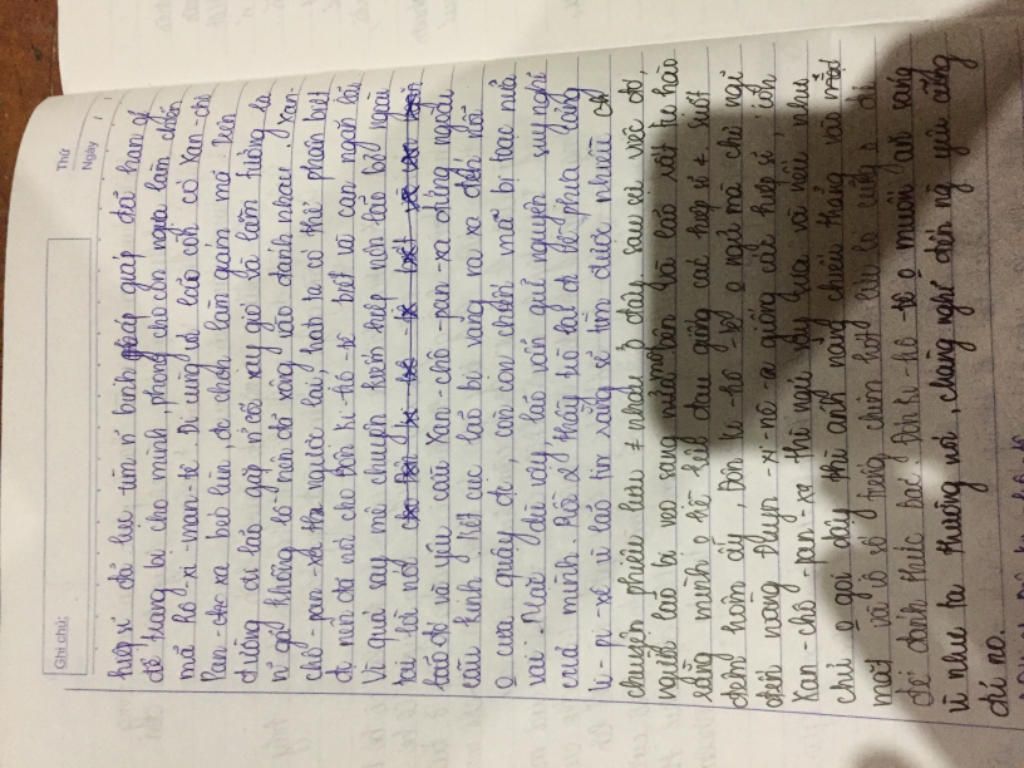 Ghi chú:
Thứ
Ngày
hiệp sĩ đã lục tìm n̄ binh giáp gáp đã han gỉ
để trang bị cho mình, phong cho con ngựa làm chiến
mã hô-xi-nan-tê. Đi cùng vs lão còn có Xan-chô
Pan-xa béo lùn, đc chọn làm giám mã. Trên
đường đi lão gặp n̄ cối xay gió và lầm tưởng là
n̄ gã khổng lồ nên đã xông vào đánh nhau. Xan-
chô-pan-xa thì ngược lại, hoàn ta có thể phân biệt
đc nên đã nói cho Đôn Ki-hô-tê biết và can ngăn lão
Vì quá say mê chuyện kiếm hiệp nên lão bỏ ngoài
tai lời nói
lão đi và yêu cầu Xan-chô-pan-xa đứng ngoài
cầu kinh. Kết cục lão bị văng ra xa đến nỗi
o cựa quậy đc, còn con chiến mã bị toạc nửa
vai. Mặc dù vậy, lão vẫn giữ nguyên suy nghĩ
của mình. Rồi 2 thầy trò lại đi về phía cảng
La-pi-xê vì lão tin rằng sẽ tìm được nhiều
chuyện phiêu lưu ≠ nhau. Ở đây, sau cái việc đó,
người lão bị vẹo sang một bên và lão rất tự hào
rằng mình o hề kêu đau giống các hiệp sĩ ≠. Suốt
đêm hôm ấy, Đôn Ki-hô-tê o ngủ mà chỉ nghĩ
đến nàng Đuyn-xi-nê-a giống các hiệp sĩ, còn
Xan-chô-pan-xa thì ngủ say sưa và nếu như
chủ o gọi dậy thì ánh nắng chiếu thẳng vào mặt
mặt và vô số tiếng chim hót líu lo cũng o đủ
để đánh thức bác. Đôn Ki-hô-tê o muốn ăn sáng
vì như ta thường nói, chàng nghĩ đến ng̀ yêu cũng
đủ no.